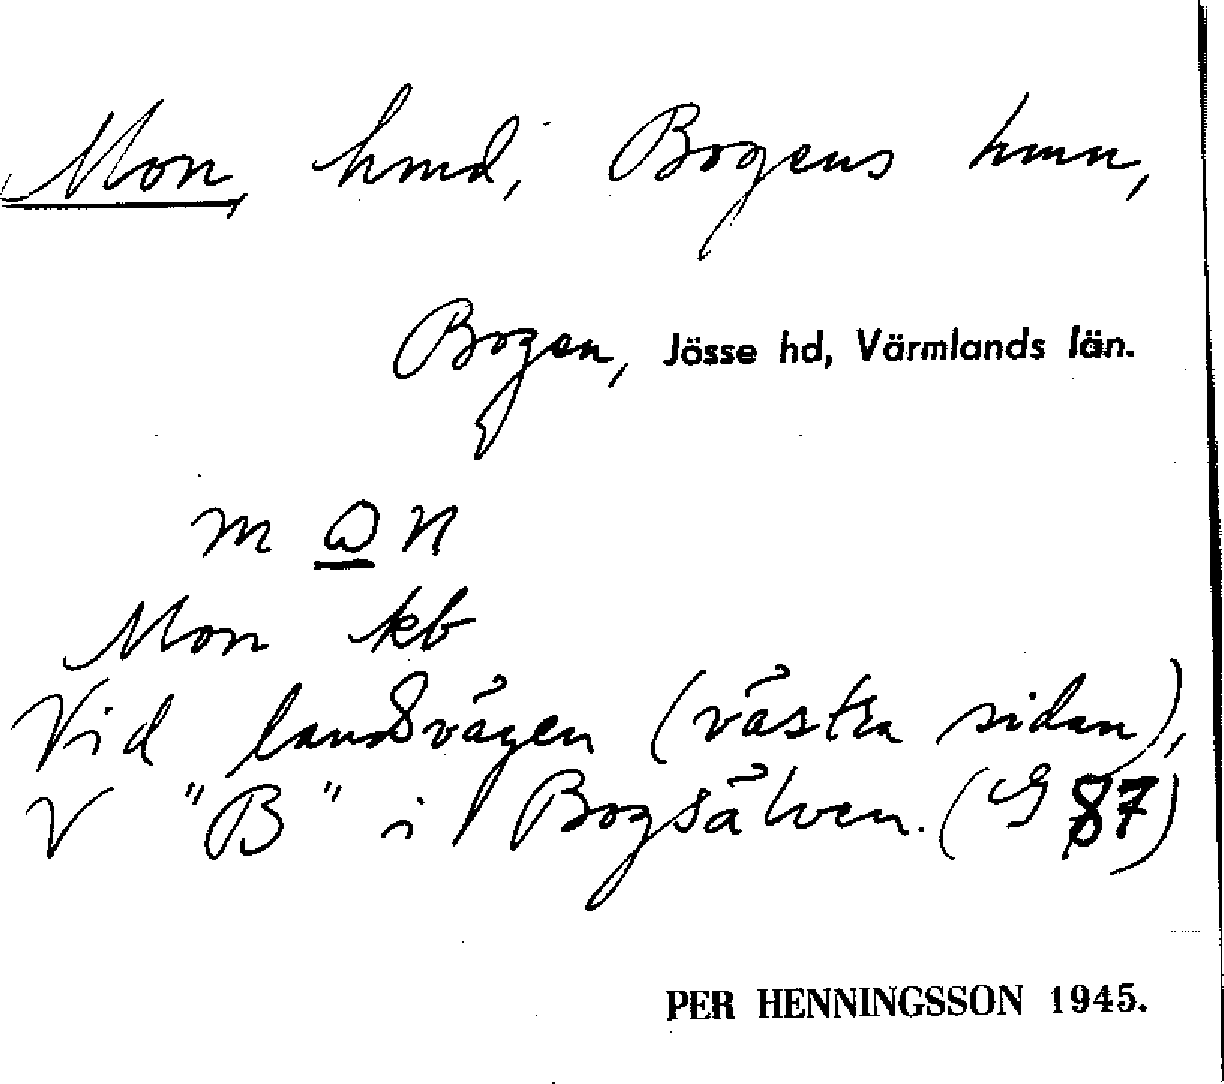 Mon, hmd, Bogens hmn,
Bogen, Jösse hd, Värmlands län.
Mon kb
Vid landsvägen (västra sidan),
V "B" i Bogsälven. (G 87)
PER HENNINGSSON 1945.